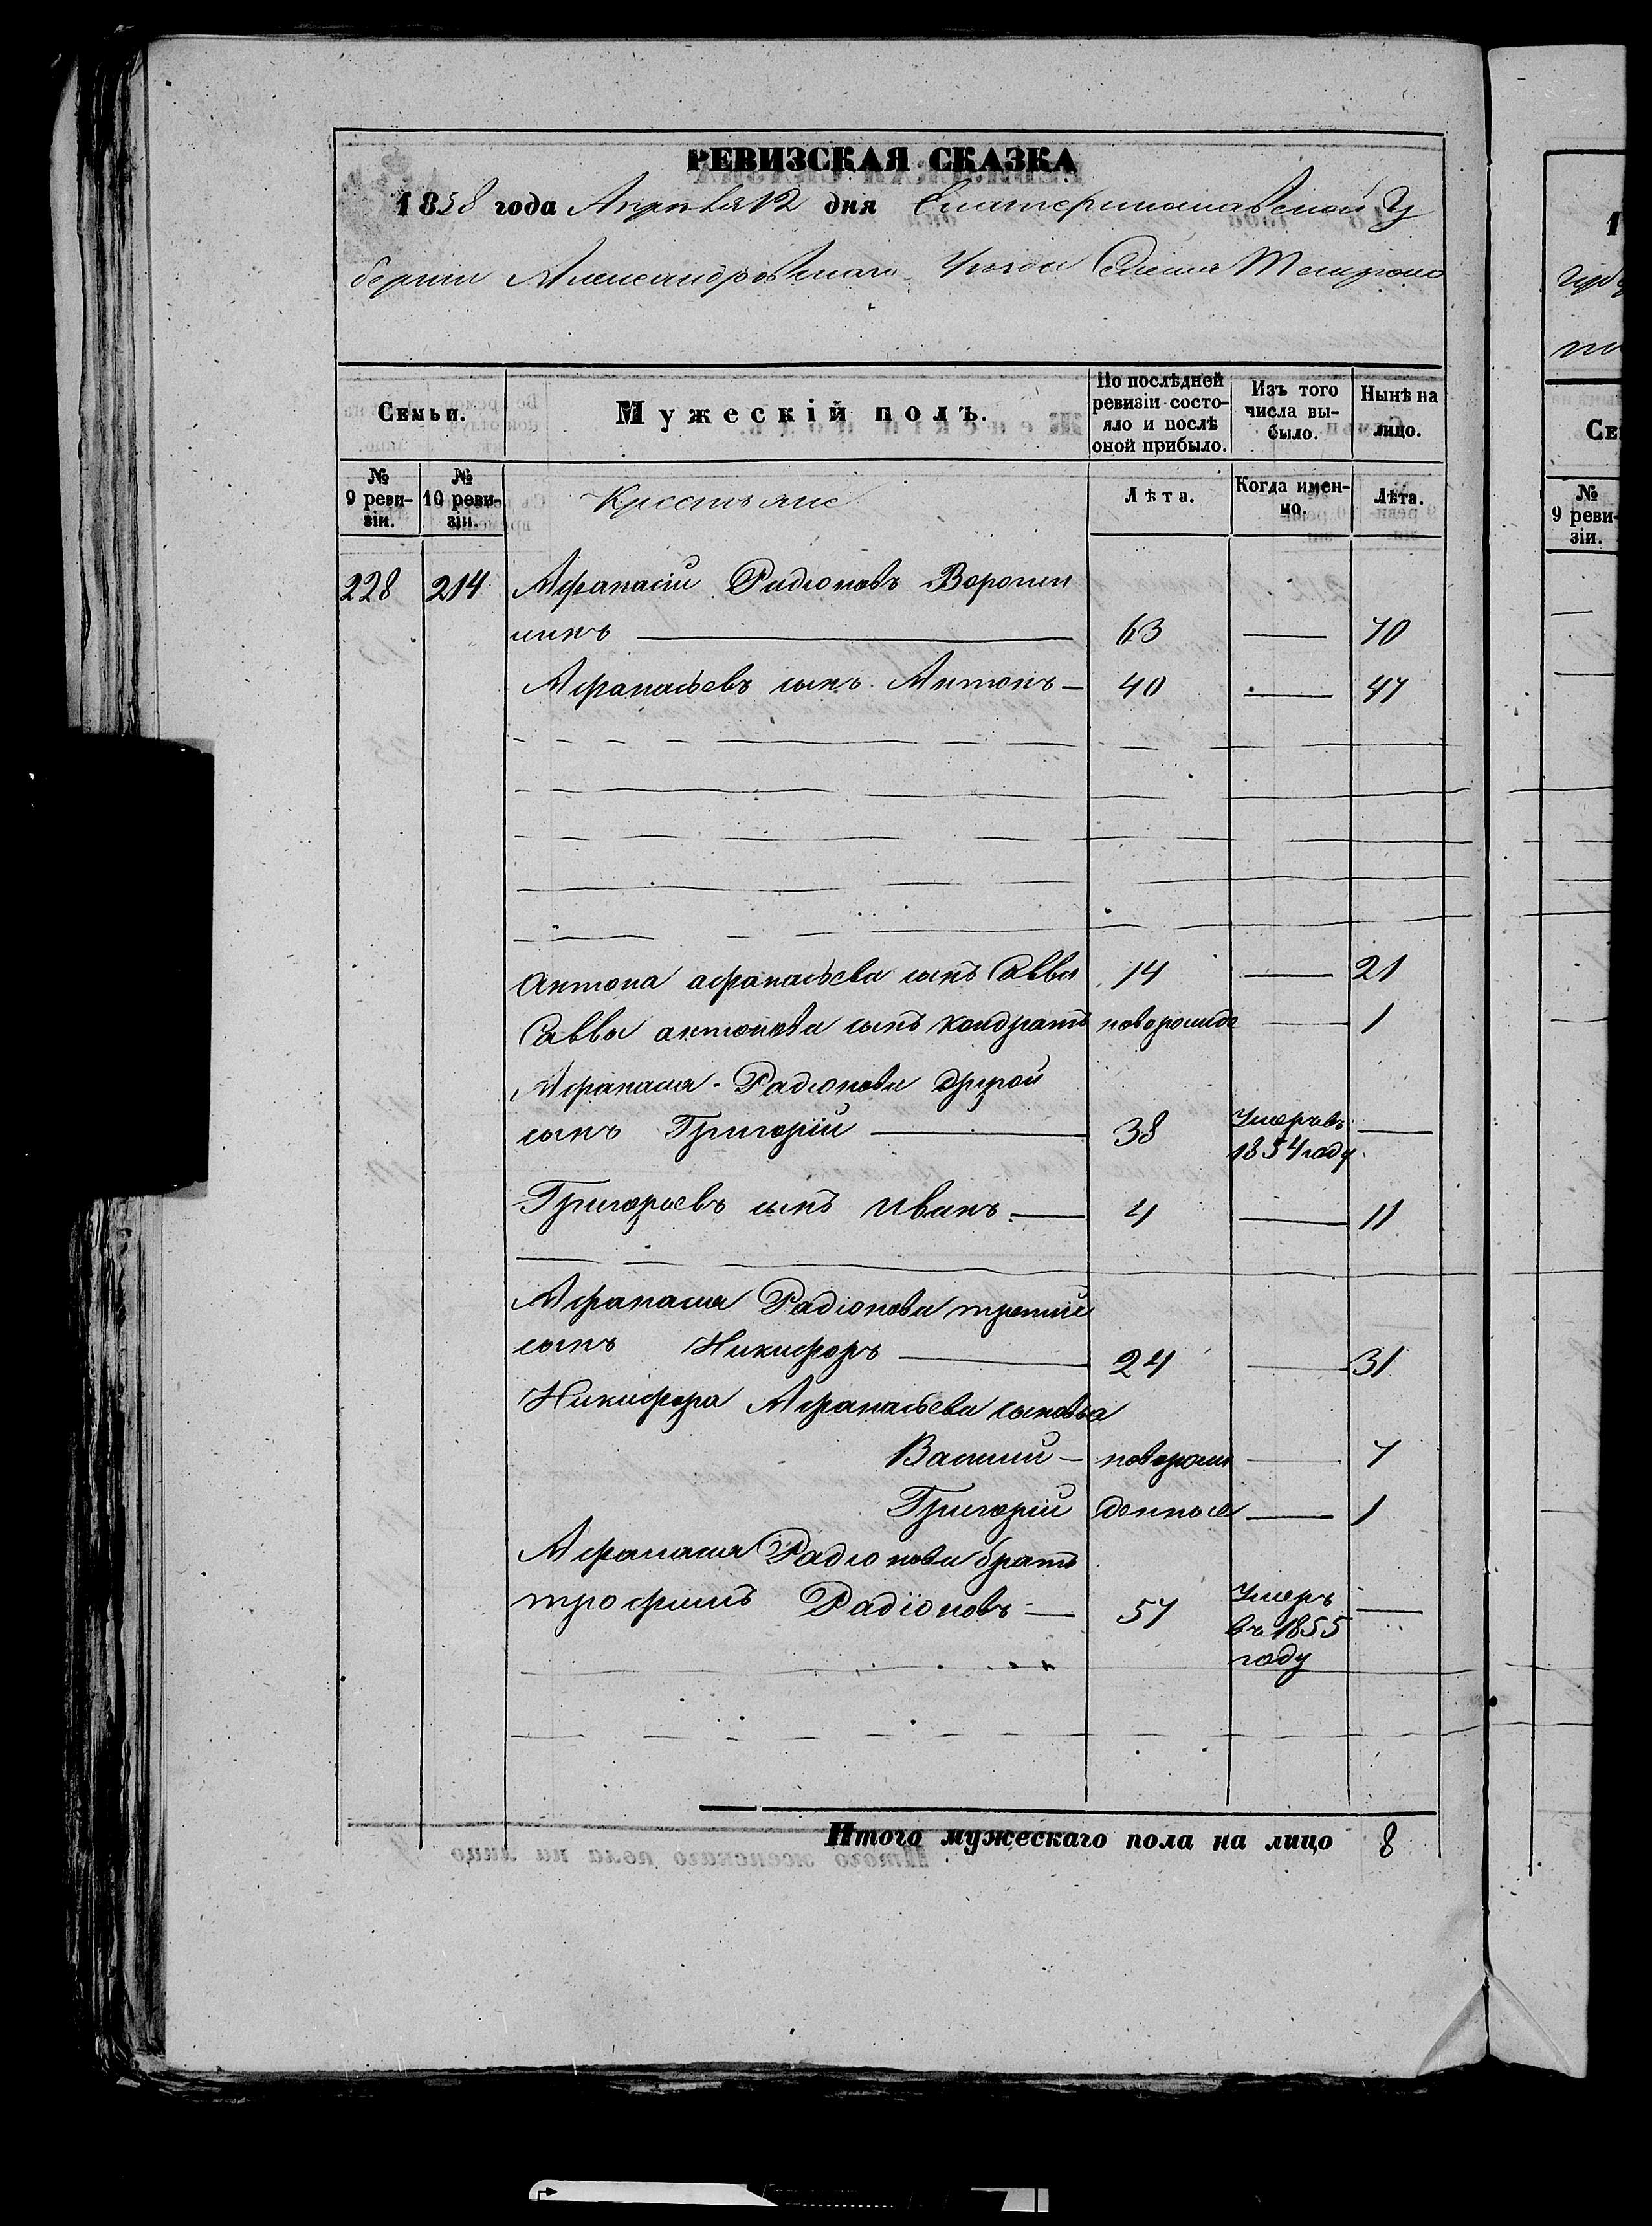 РЕВИЗСКАЯ СКАЗКА
1858 года Апреля 12 дня Екатеринославской Гу
бернии Александровскаго Уезда Селения Темрюка
Семьи. Мужескій полъ. По послѣдней ревизіи состояло и послѣ оной прибыло. Изъ того числа выбыло. Нынѣ на лицо.
№ 9 ревизіи. № 10 ревизіи. Крестьяне Лѣта. Когда именно. Лѣта.
228 214 Афанасій Радіоновъ
63 — 70
Афанасьевъ сынъ Антонъ — 40 — 47
Антона афанасьева сынъ Савва 14 — 21
Саввы антонова сынъ кондратъ новорожде — 1
Афанасия Радіонова другой
сынъ Григорій — 38 Умеръ въ 1854 году —
Григорьевъ сынъ Иванъ — 4 — 11
Афанасия Радіонова третий
сынъ Никифоръ — 24 — 31
Никифора Афанасьева сыновья
Василий — новорож — 7
Григорій денные — 1
Афанасия Радіонова братъ
трофимъ Радіоновъ — 57 Умеръ въ 1855 году —
Итого мужескаго пола на лицо 8
1
губ
Се
№
9 реви-
зіи.